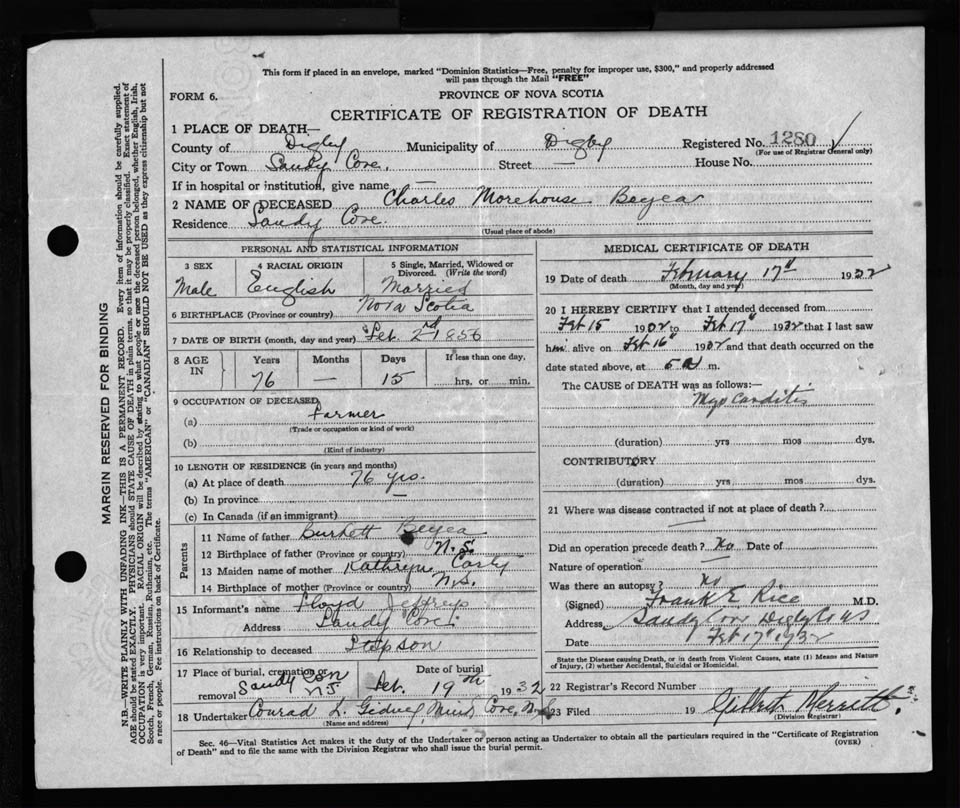 This form if placed in an envelope, marked "Dominion Statistics—Free, penalty for improper use, $300," and properly addressed
will pass through the Mail "FREE"
FORM 6. PROVINCE OF NOVA SCOTIA
CERTIFICATE OF REGISTRATION OF DEATH
1 PLACE OF DEATH—
County of Digby Municipality of Digby Registered No. 1280
(For use of Registrar General only)
City or Town Sandy Cove. Street — House No.
If in hospital or institution, give name —
2 NAME OF DECEASED Charles Morehouse Beyea
Residence Sandy Cove
(Usual place of abode)
PERSONAL AND STATISTICAL INFORMATION
3 SEX 4 RACIAL ORIGIN 5 Single, Married, Widowed or
Divorced. (Write the word)
Male English Married
6 BIRTHPLACE (Province or country) Nova Scotia
7 DATE OF BIRTH (month, day and year) Feb. 2nd 1856
8 AGE IN Years Months Days If less than one day,
76 — 15 hrs. or min.
9 OCCUPATION OF DECEASED
(a) Farmer
(Trade or occupation or kind of work)
(b)
(Kind of industry)
10 LENGTH OF RESIDENCE (in years and months)
(a) At place of death 76 yrs.
(b) In province —
(c) In Canada (if an immigrant)
Parents
11 Name of father Burkett Beyea
12 Birthplace of father (Province or country) N.S.
13 Maiden name of mother Kathryne Carty
14 Birthplace of mother (Province or country) N.S.
15 Informant's name Floyd Jeffreys
Address Sandy Cove.
16 Relationship to deceased Stepson
17 Place of burial, cremation or Date of burial
removal Sandy Cove N.S. Feb. 19th 1932
18 Undertaker Conrad L. Gidney, Mink Cove, N.S.
(Name and address)
MEDICAL CERTIFICATE OF DEATH
19 Date of death February 17th 1932
(Month, day and year)
20 I HEREBY CERTIFY that I attended deceased from
Feb 15 1932 to Feb 17th 1932 that I last saw
him alive on Feb 16th 1932 and that death occurred on the
date stated above, at 5 a m.
The CAUSE OF DEATH was as follows:—
Myocarditis
(duration) yrs mos dys.
CONTRIBUTORY
(duration) yrs mos dys.
21 Where was disease contracted if not at place of death?
—
Did an operation precede death? No Date of
Nature of operation —
Was there an autopsy? No
(Signed) Frank E Rice M.D.
Address Sandy Cove Digby Co NS
Date Feb 17th 1932
State the Disease causing Death, or in death from Violent Causes, state (1) Means and Nature
of Injury, (2) whether Accidental, Suicidal or Homicidal.
22 Registrar's Record Number
23 Filed 19 Gilbert Merritt.
(Division Registrar)
Sec. 46—Vital Statistics Act makes it the duty of the Undertaker or person acting as Undertaker to obtain all the particulars required in the "Certificate of Registration
of Death" and to file the same with the Division Registrar who shall issue the burial permit.
(OVER)
MARGIN RESERVED FOR BINDING
N.B.—WRITE PLAINLY WITH UNFADING INK—THIS IS A PERMANENT RECORD. Every item of information should be carefully supplied.
AGE should be stated EXACTLY. PHYSICIANS should STATE CAUSE OF DEATH in plain terms, so that it may be properly classified. Exact statement of
OCCUPATION is very important. RACIAL ORIGIN will be described by stating to what people or race the deceased person belonged, whether English, Irish,
Scotch, French, German, Russian, Ruthenian, etc. The terms "AMERICAN" or "CANADIAN" SHOULD NOT BE USED as they express citizenship but not
a race or people. Fee instructions on back of Certificate.